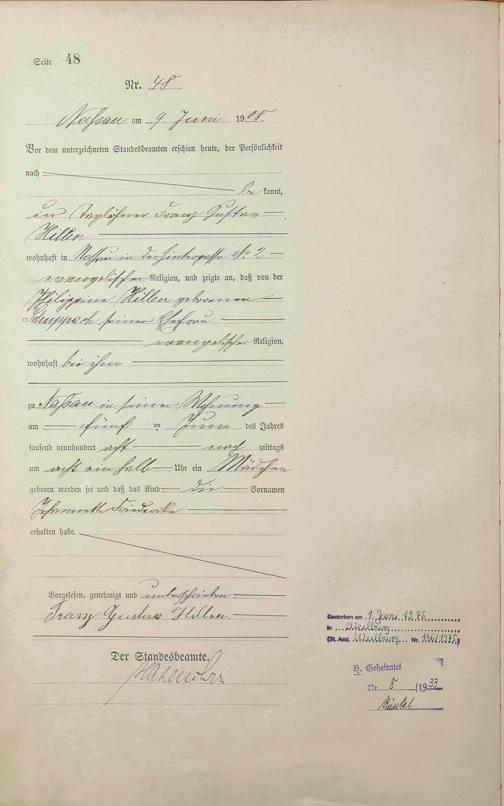 Seite 48
Nr. 48
Nassau am 9 Juni 1908.
Vor dem unterzeichneten Standesbeamten erschien heute, der Persönlichkeit
nach
be kannt,
der Taglöhner Franz Gustav
Hillen
wohnhaft in Nassau in der Hintergasse No. 2
evangelischer Religion, und zeigte an, daß von der
Philippine Hillen geborenen
Schuppach seiner Ehefrau
evangelischer Religion,
wohnhaft bei ihm
zu Nassau in seiner Wohnung
am fünf ten Juni des Jahres
tausend neunhundert acht nach mittags
um acht einhalb Uhr ein Mädchen
geboren worden sei und daß das Kind die Vornamen
Johannette Friederike
erhalten habe.
Vorgelesen, genehmigt und unterschrieben
Franz Gustav Hillen.
Der Standesbeamte.
Gestorben am 1. Juni 1975
in Weilburg
(St. Amt. Weilburg Nr. 136/1975)
H. Geheiratet
Nr. 8 /1933